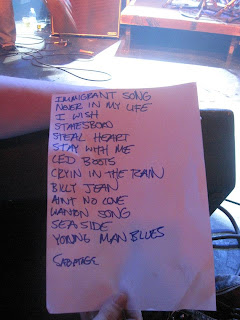 IMMIGRANT SONG
NEVER IN MY LIFE
I WISH
STATESBORO
STEAL HEART
STAY WITH ME
LED BOOTS
CRYIN IN THE RAIN
BILLY JEAN
AINT NO LOVE
WANTON SONG
SEASIDE
YOUNG MAN BLUES
SABOTAGE